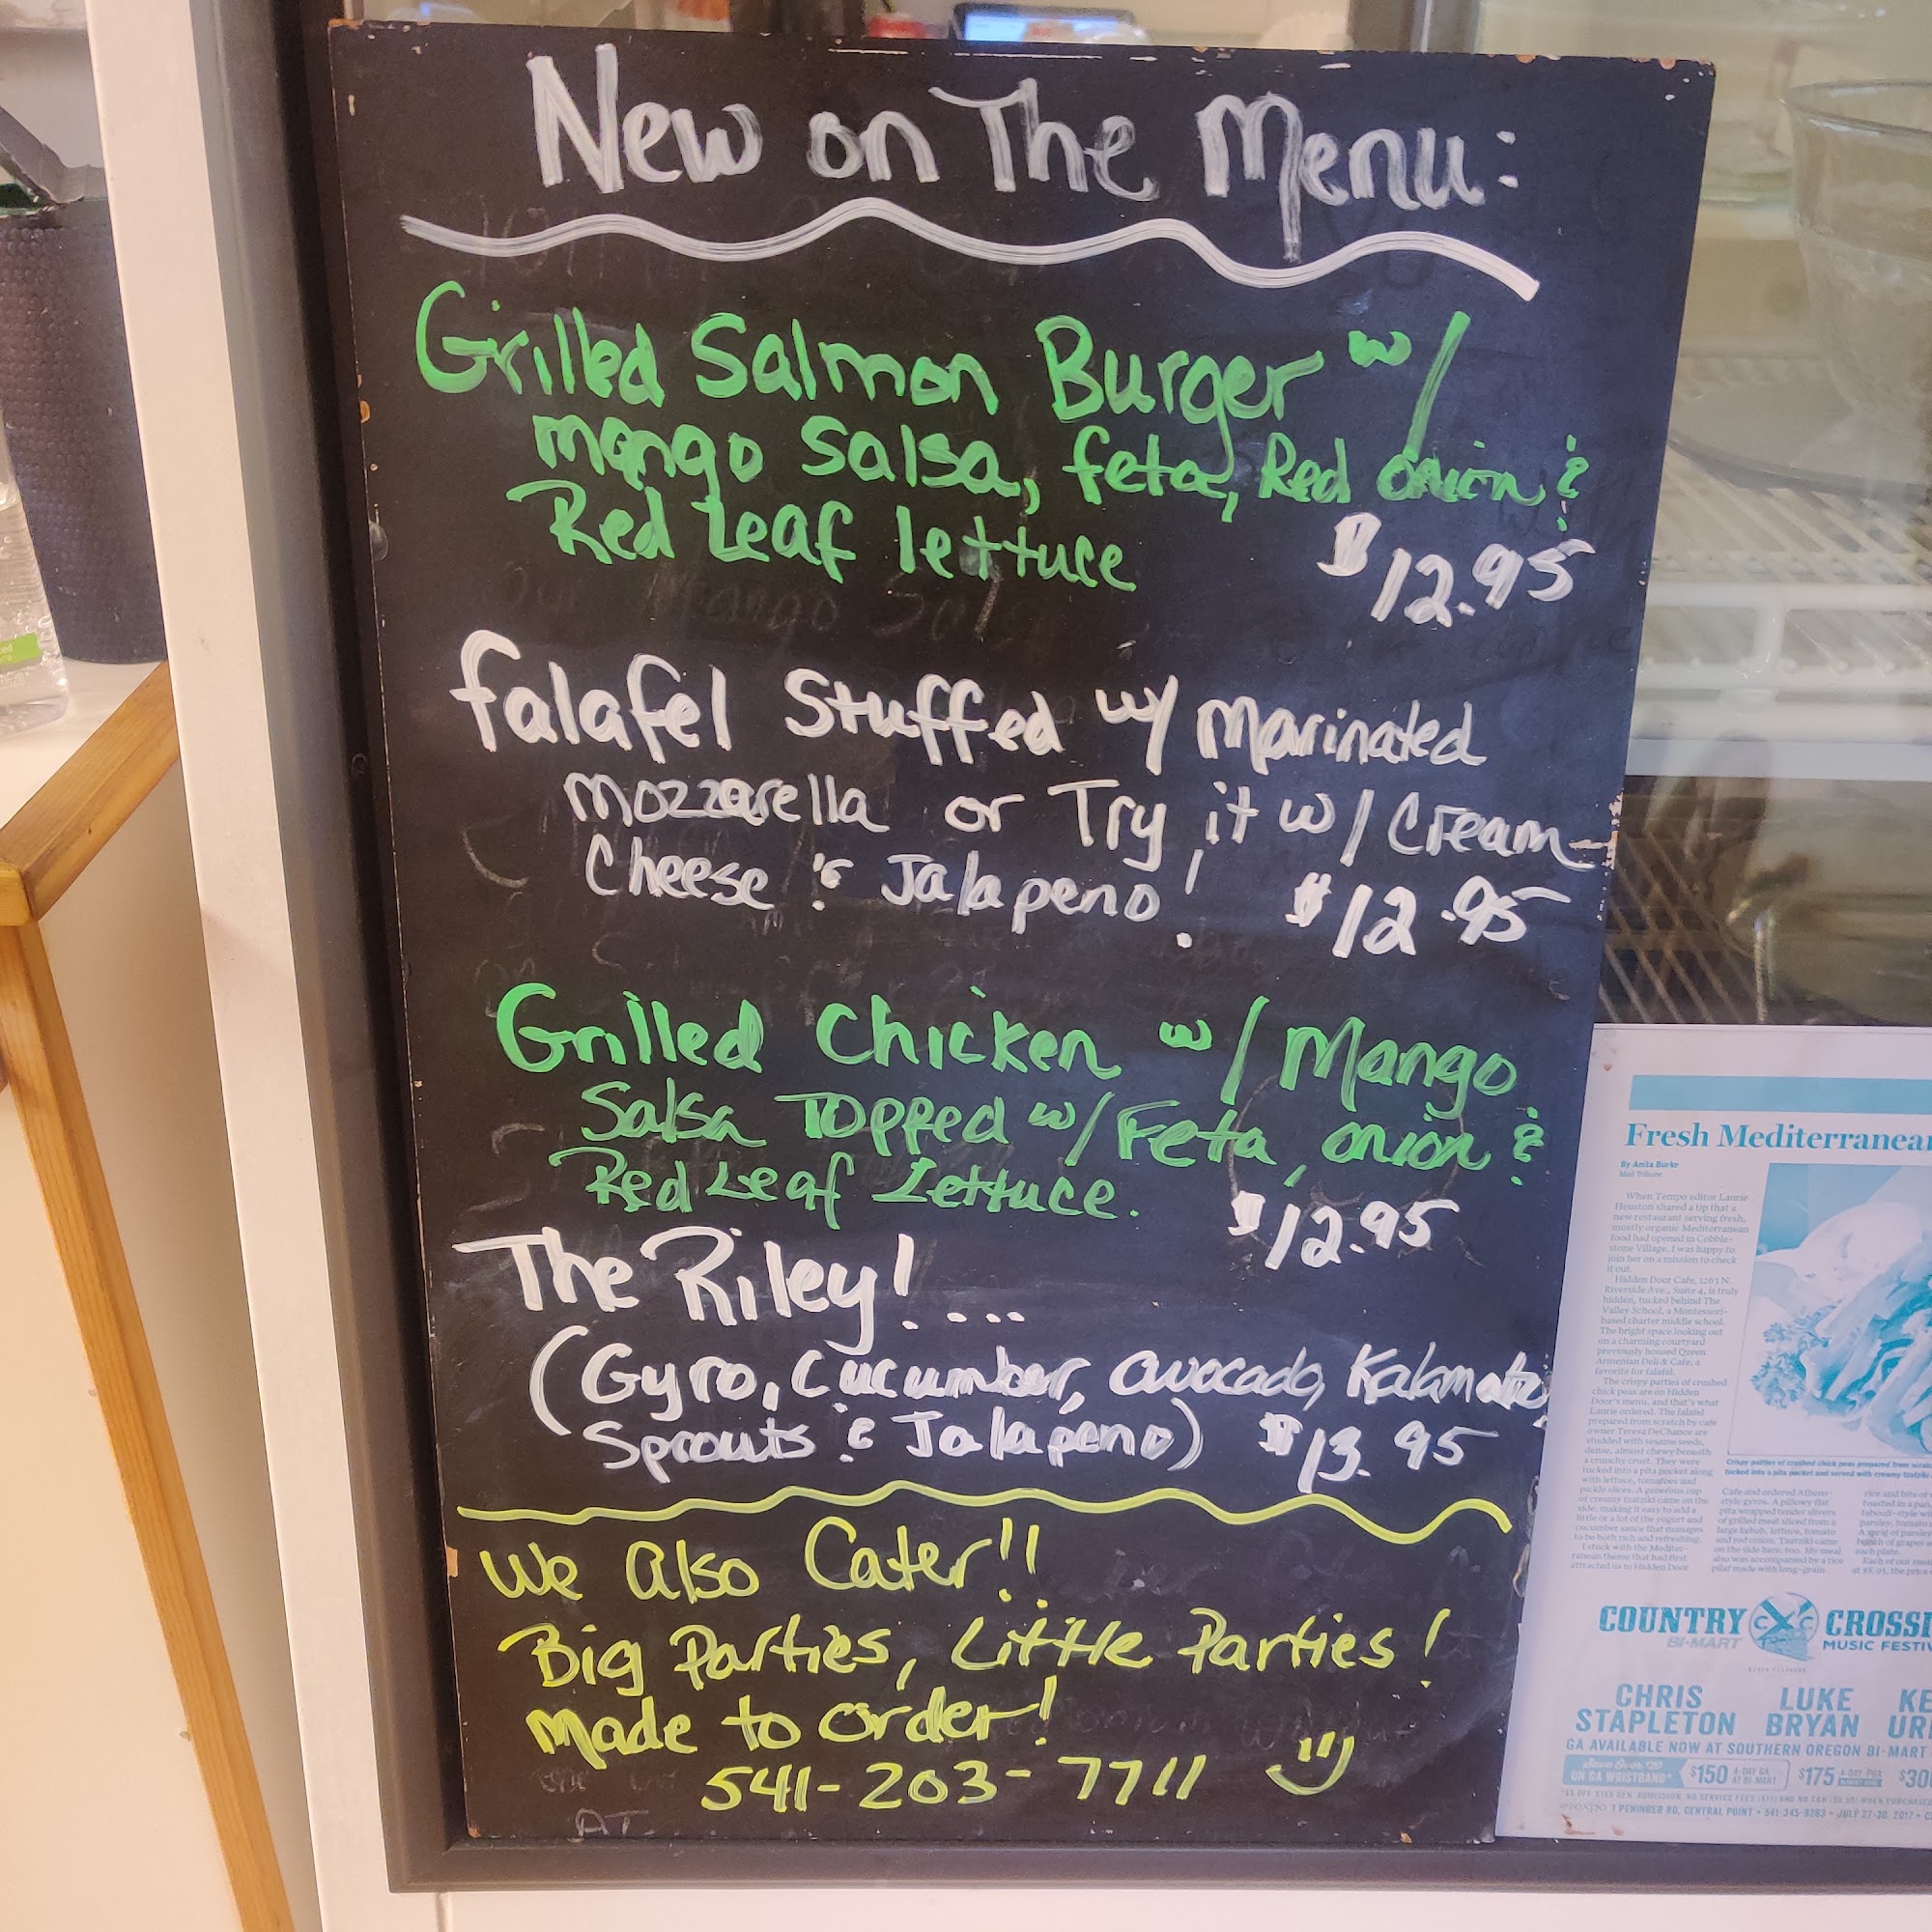 New on The Menu:
Grilled Salmon Burger w/
mango Salsa, feta, Red onion &
Red Leaf lettuce
$12.95
falafel Stuffed w/ Marinated
Mozzarella or Try it w/ Cream
Cheese & Jalapeno!
$12.95
Grilled Chicken w/ Mango
Salsa Topped w/ Feta, onion &
Red Leaf Lettuce.
$12.95
The Riley!....
(Gyro, Cucumber, avocado, Kalamata,
Sprouts & Jalapeno) $13.95
We also Cater!!
Big Parties, Little Parties!
made to order!
541-203-7711
Fresh Mediterranean
By Anita Burke
Mail Tribune
When Tempo editor Laurie
Heuston shared a tip that a
new restaurant serving fresh,
mostly organic Mediterranean
food had opened in Cobble-
stone Village, I was happy to
join her on a mission to check
it out.
Hidden Door Cafe, 1263 N.
Riverside Ave., Suite 4, is truly
hidden, tucked behind The
Valley School, a Montessori-
based charter middle school.
The bright space looking out
on a charming courtyard
previously housed Queen
Armenian Deli & Cafe, a
favorite for falafel.
The crispy patties of crushed
chick peas are on Hidden
Door's menu, and that's what
Laurie ordered. The falafel
prepared from scratch by cafe
owner Teresa DeChance are
studded with sesame seeds,
dense, almost chewy beneath
a crunchy crust. They were
tucked into a pita pocket along
with lettuce, tomatoes and
pickle slices. A generous cup
of creamy tzatziki came on the
side, making it easy to add a
little or a lot of the yogurt and
cucumber sauce that manages
to be both rich and refreshing.
I stuck with the Mediter-
ranean theme that had first
attracted us to Hidden Door
Crispy patties of crushed chick peas prepared from scratch
tucked into a pita pocket and served with creamy tzatziki
Cafe and ordered Athens-
style gyros. A pillowy flat
pita wrapped tender slivers
of grilled meat sliced from a
large kebab, lettuce, tomato
and red onion. Tzatziki came
on the side here, too. My meal
also was accompanied by a rice
pilaf made with long-grain
rice and bits of
toasted in a pan
tabouli-style
parsley, tomato
A sprig of parsley
bunch of grapes
each plate.
Each of our
at $8.95, the price
COUNTRY CROSSI
BI-MART
MUSIC FESTIV
CHRIS
STAPLETON
LUKE
BRYAN
KE
UR
GA AVAILABLE NOW AT SOUTHERN OREGON BI-MART
ON GA WRISTBAND*
$150 4-DAY GA
AT BI-MART
$175 4-DAY
$30
1 PENINGER RD, CENTRAL POINT • 541-345-9263 • JULY 27-30, 2017 •